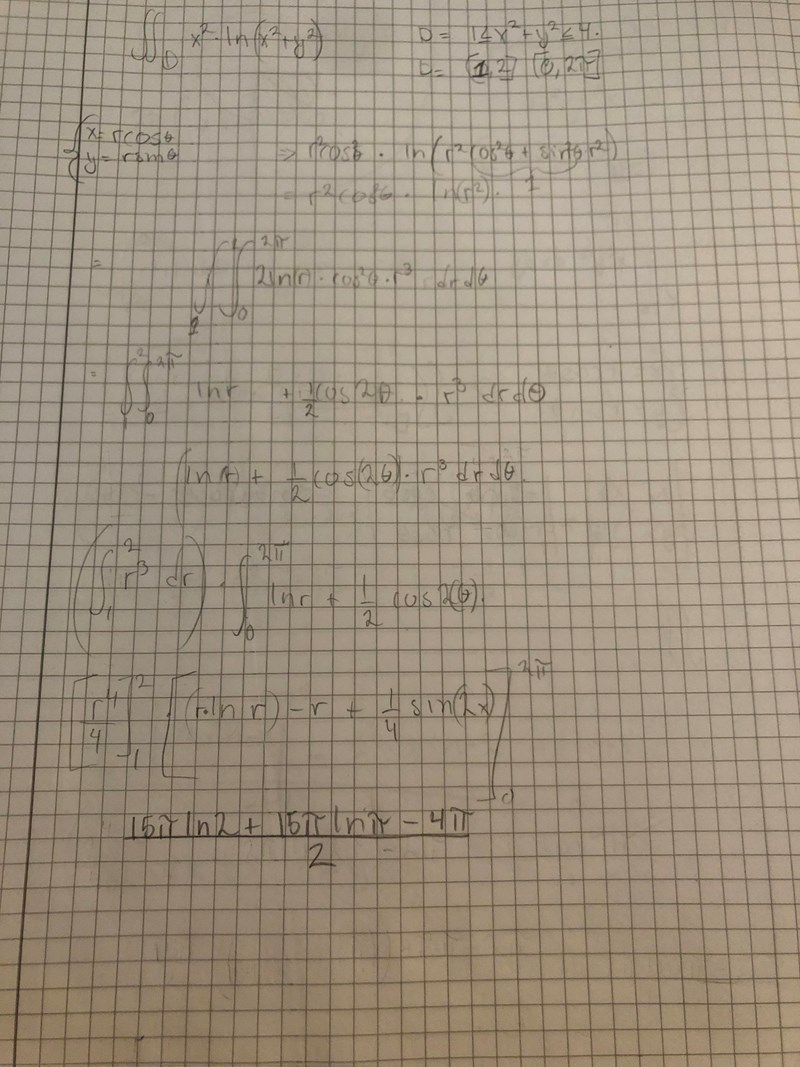 ∬_D x²·ln(x²+y²) D = 1≤x²+y²≤4.
D = [1,2] [0,2π]
{ x = rcosθ
y = rsinθ ⇒ r²cos²θ · ln(r²cos²θ + sin²θ r²)
= r²cos²θ · ln(r²). 1
= ∫₁² ∫₀^2π 2ln(r) · cos²θ · r³ dr dθ
= ∫₁² ∫₀^2π ln r + 1/2 cos2θ · r³ dr dθ
(ln r) + 1/2 cos(2θ) · r³ dr dθ
(∫₁² r³ dr) · ∫₀^2π ln r + 1/2 cos2(θ).
[r⁴/4]₁² [(r·ln r) - r + 1/4 sin(2x)]₀^2π
(15π ln2 + 15π lnπ - 4π)/2